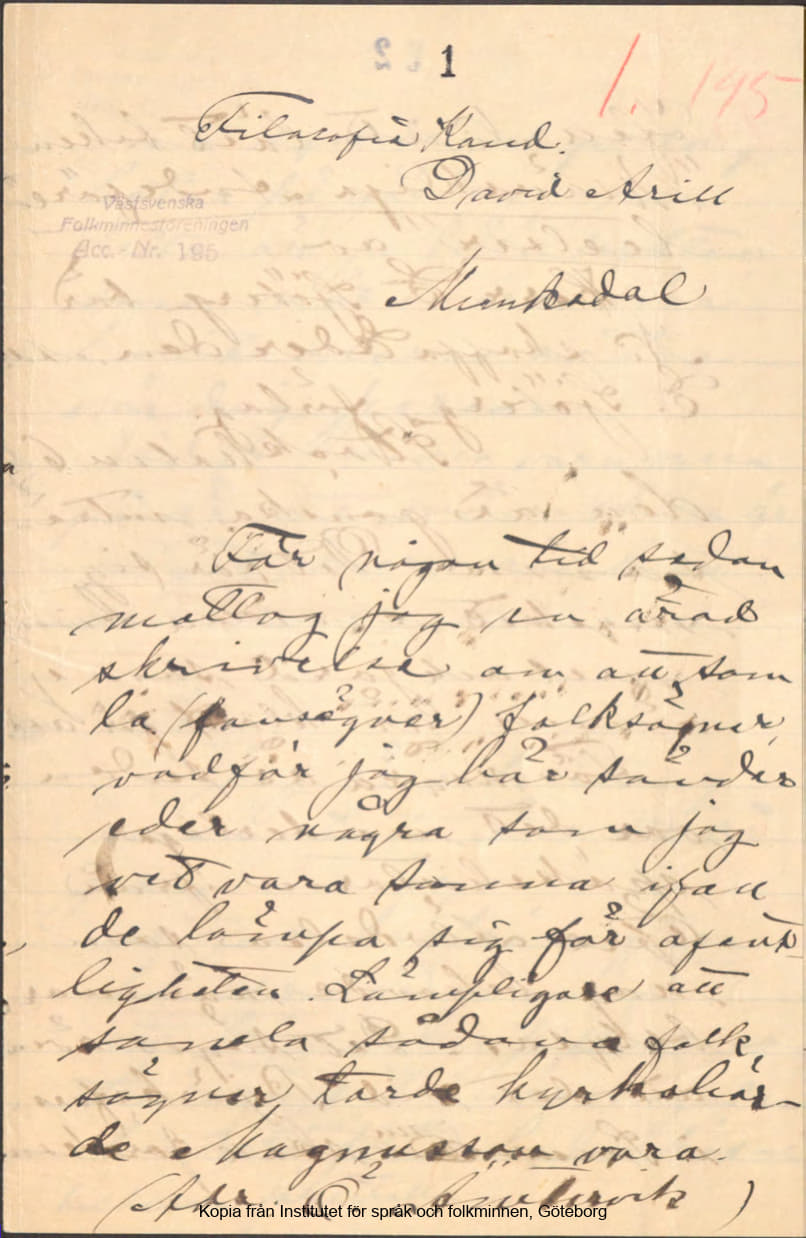 1
1. 195
Filosofie Kand.
David Arill
Västsvenska
Folkminnesföreningen
Acc.-Nr. 195
Munkedal
För någon tid sedan
mottog jag en ärad
skrivelse om att sam
la (fornsägner) folksägner,
vadför jag här sänder
eder några som jag
vet vara sanna ifall
de lämpa sig för ofent-
ligheten. Lämpligare att
samla sådana folk,
sägner torde kyrkohär-
de Magnusson vara.
(Adr. )
Kopia från Institutet för språk och folkminnen, Göteborg